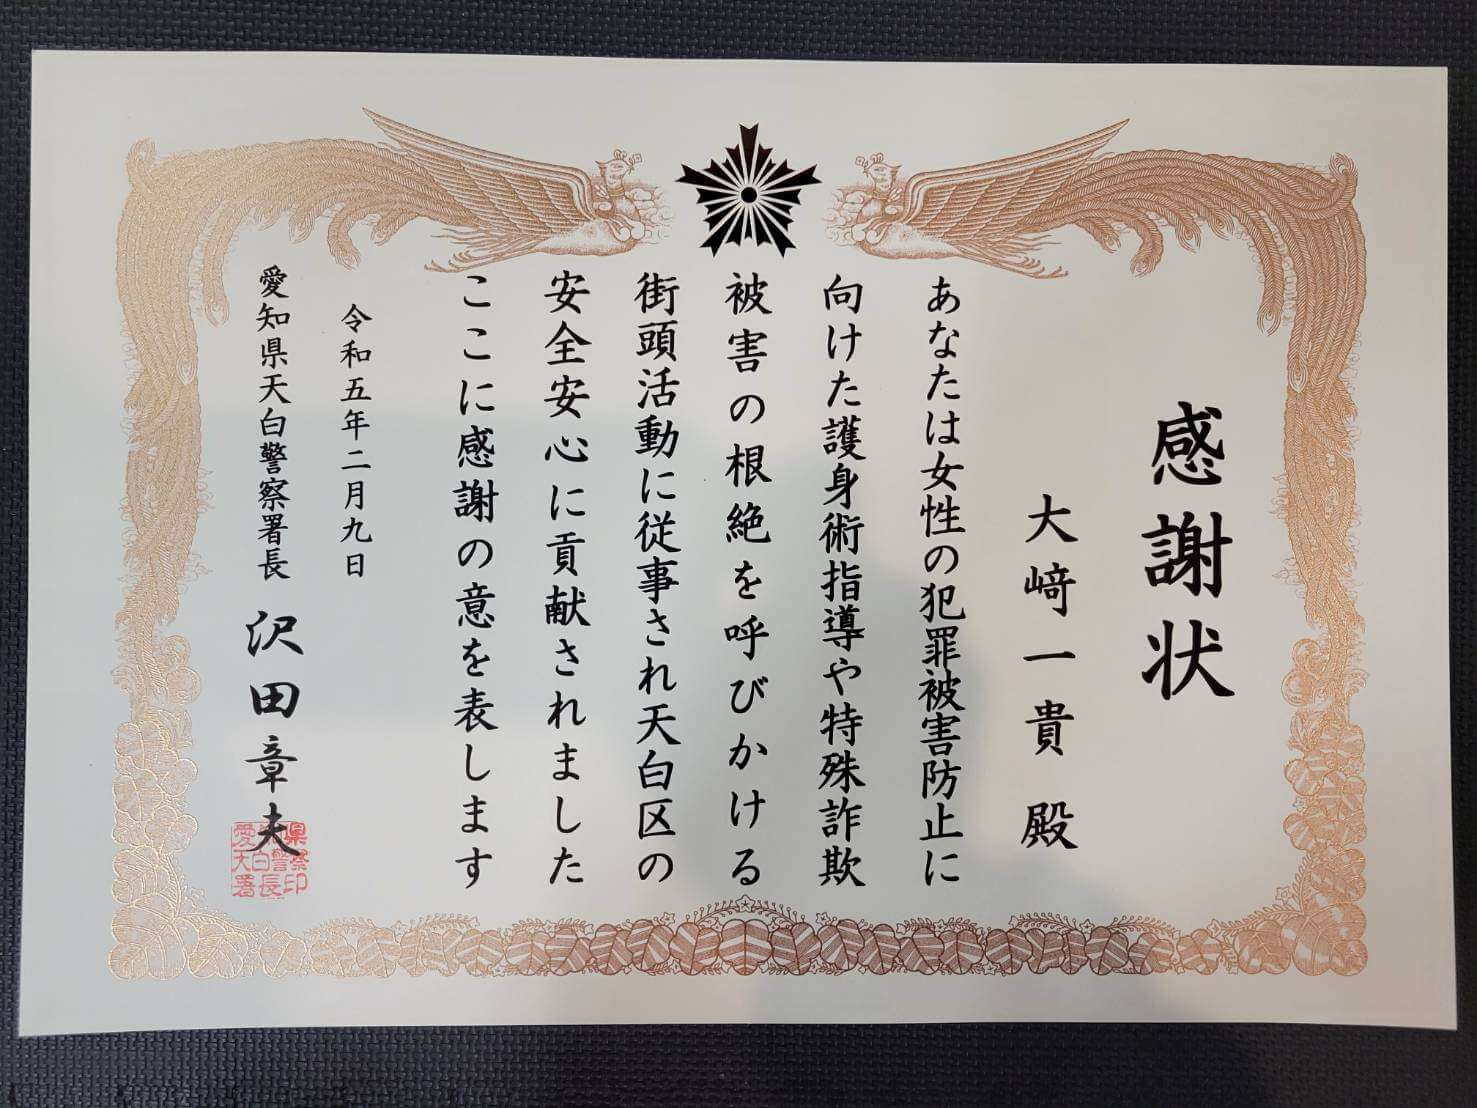 感謝状
大﨑一貴 殿
あなたは女性の犯罪被害防止に
向けた護身術指導や特殊詐欺
被害の根絶を呼びかける
街頭活動に従事され天白区の
安全安心に貢献されました
ここに感謝の意を表します
令和五年二月九日
愛知県天白警察署長 沢田章夫